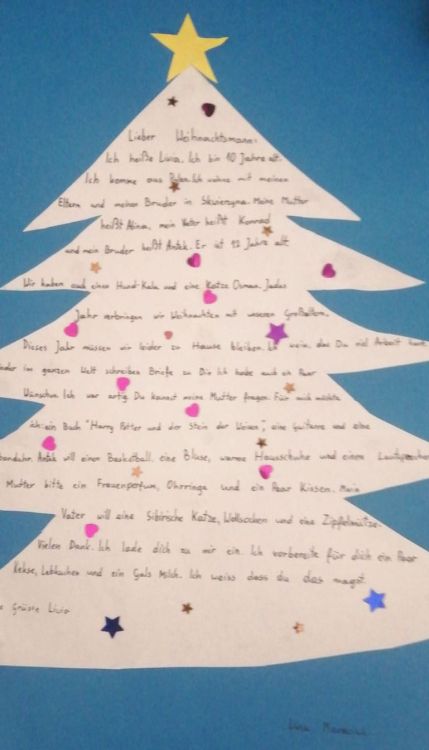 Lieber Weihnachtsmann!
Ich heiße Livia. Ich bin 10 Jahre alt.
Ich komme aus Polen. Ich wohne mit meinen
Eltern und meinen Bruder in Skwierzyna. Meine Mutter
heißt Alina, mein Vater heißt Konrad
und mein Bruder heißt Antek. Er ist 12 Jahre alt.
Wir haben auch einen Hund-Kala und eine Katze Osman. Jedes
Jahr verbringen wir Weihnachten mit unseren Großeltern.
Dieses Jahr müssen wir leider zu Hause bleiben. Ich weis, das Du viel Arbeit hast.
Kinder im ganzen Welt schreiben Briefe zu Dir Ich habe auch ein Paar
Wünschen. Ich war artig. Du kannst meine Mutter fragen. Für mich möchte
ich: ein Buch "Harry Potter und der Stein der Weisen", eine Guitarre und eine
Antek will einen Basketball, eine Bluse, warme Hausschuhe und einem Lautsprecher
Mutter bitte ein Frauenparfum, Ohrringe und ein Paar Kissen. Mein
Vater will eine Sibirische Katze, Wollsocken und eine Zipfelmütze.
Vielen Dank. Ich lade dich zu mir ein. Ich vorbereite für dich ein Paar
Kekse, Lebkuchen und ein Gals Milch. Ich weiss dass du das magst.
Grüsse Livia